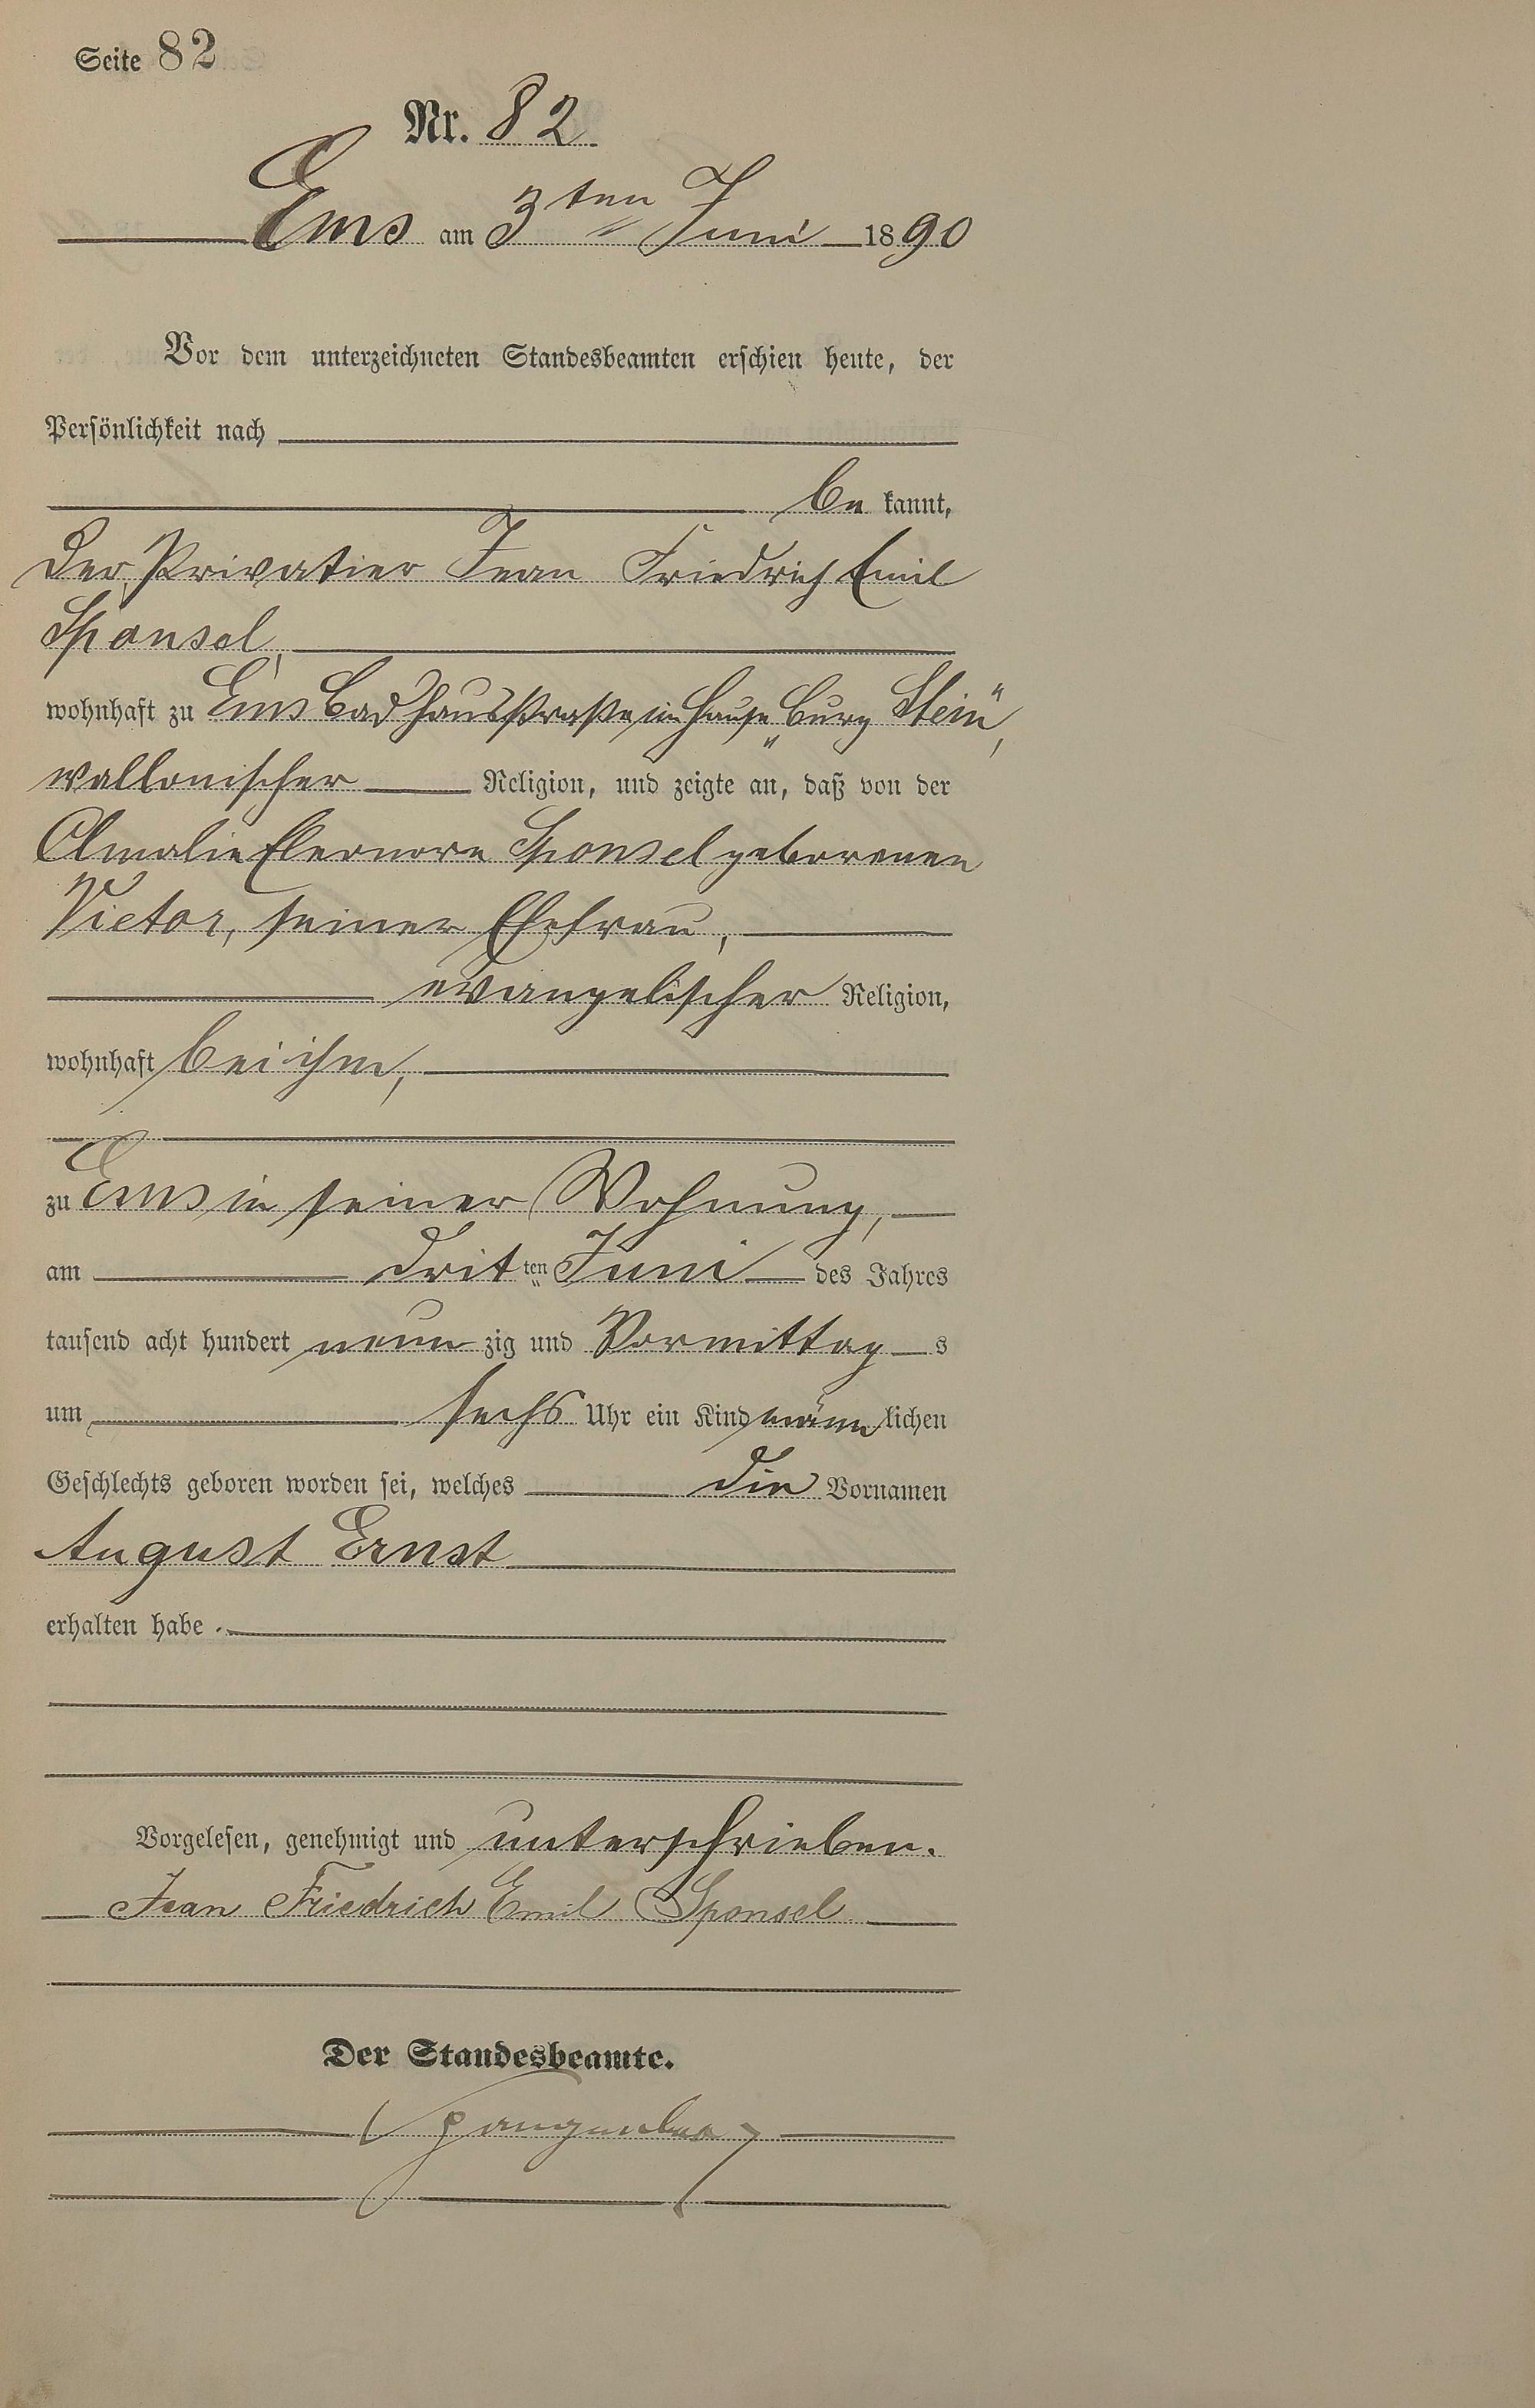 Seite 82
Nr. 82
Ems am 3ten Juni 1890
Vor dem unterzeichneten Standesbeamten erschien heute, der
Persönlichkeit nach
be kannt,
der Privatier Jean Friedrich Emil
Sponsel,
wohnhaft zu Ems Badhausstraße im Hause „Burg Stein“,
wallonischer Religion, und zeigte an, daß von der
Amalie Eleonore Sponsel geborenen
Victor, seiner Ehefrau,
evangelischer Religion,
wohnhaft bei ihm,
zu Ems in seiner Wohnung,
am dritten Juni des Jahres
tausend acht hundert neun zig und Vormittag s
um sechs Uhr ein Kind männ lichen
Geschlechts geboren worden sei, welches die Vornamen
August Ernst
erhalten habe.
Vorgelesen, genehmigt und unterschrieben.
Jean Friedrich Emil Sponsel
Der Standesbeamte.